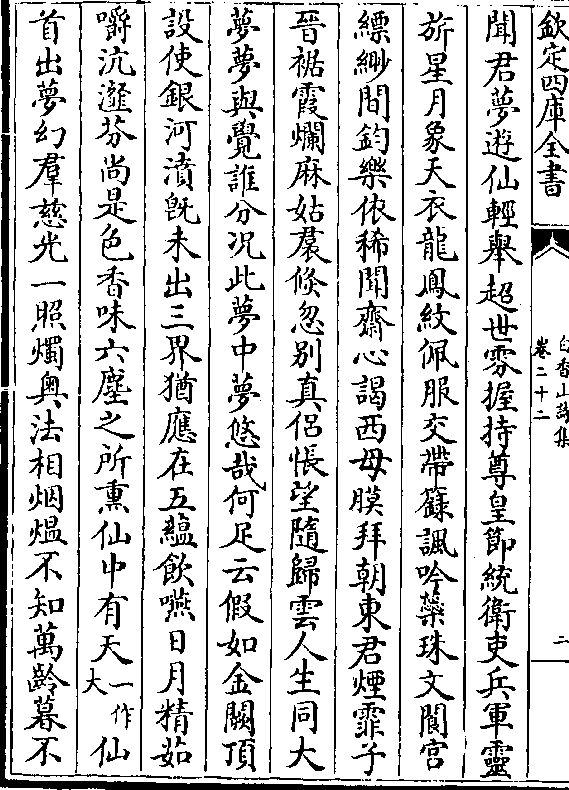 欽定四庫全書
白香山詩集
卷二十二
二
聞君夢遊仙輕舉超世雰握持尊皇節統衛吏兵軍靈
旂星月象天衣龍鳳紋佩服交帶籙諷吟蘂珠文閬宫
縹緲間鈞樂依稀聞齋心謁西母膜拜朝東君煙霏子
晉裾霞爛麻姑裠倐忽别真侣悵望隨歸雲人生同大
夢夢與覺誰分况此夢中夢悠哉何足云假如金闕頂
設使銀河濆旣未出三界猶應在五蘊飲嚥日月精茹
嚼沆瀣芬尚是色香味六塵之所熏仙中有天一作大仙
首出夢幻羣慈光一照燭奥法相烟熅不知萬齡暮不